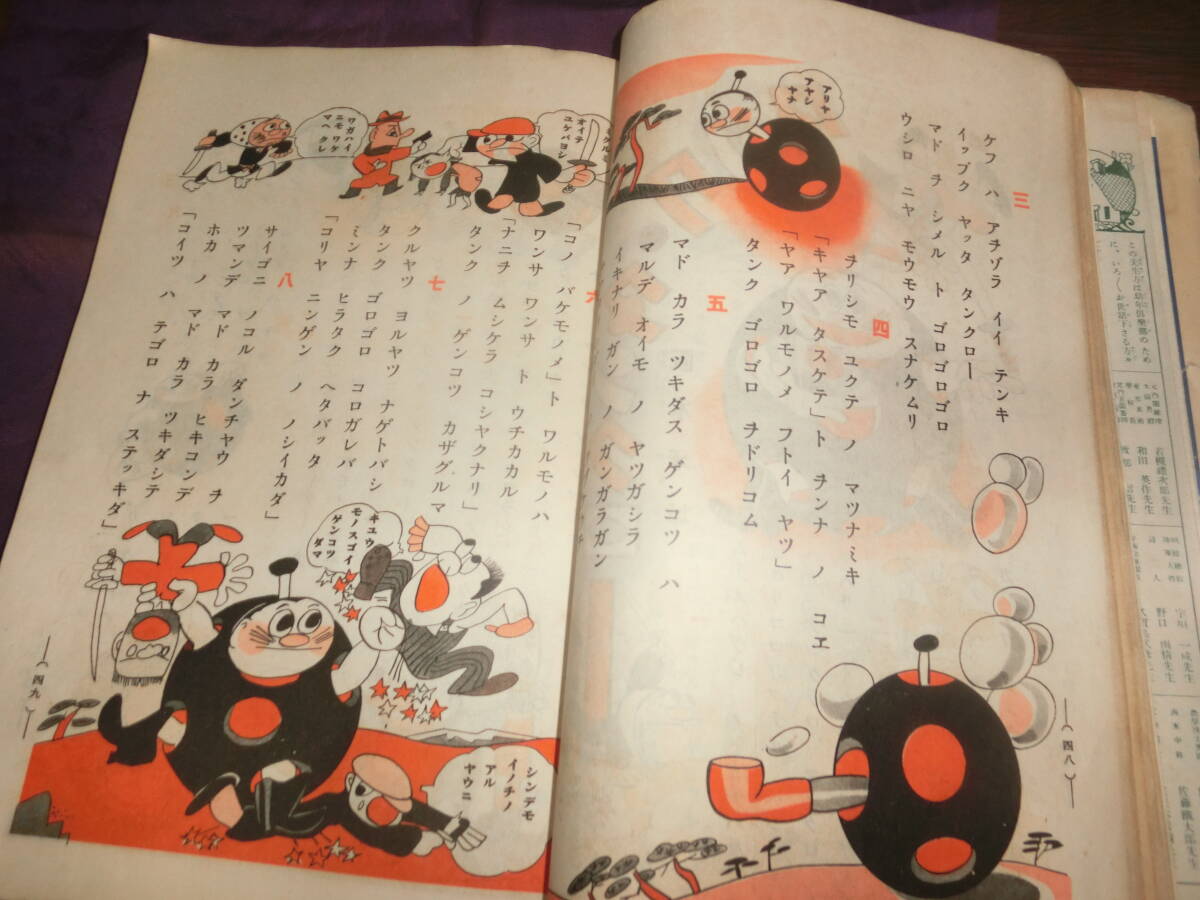 三
ケフ ハ アチヅラ イイ テンキ
イップク ヤッタ タンクロー
マド ヲ シメル ト ゴロゴロゴロ
ウシロ ニヤ モウモウ スナケムリ
アリヤ
アヤシ
ヤメ
四
ヲリシモ ユクテ ノ マツナミキ
「キヤア タスケテ」ト ヲンナ ノ コエ
「ヤア ワルモノメ フトイ ヤツ」
タンク ゴロゴロ ヲドリコム
五
マド カラ ツキダス ゲンコツ ハ
マルデ オイモ ノ ヤツガシラ
イキナリ ガン ノ ガンガラガン
(四八)
オイテ
ユケバヨシ
ワガハイ
ニモ ワケ
マヘ クレ
六
「コノ バケモノメ」ト ワルモノハ
ワンサ ワンサ ト ウチカカル
「ナニヲ ムシケラ コシヤクナリ」
タンク ノ ゲンコツ カザグルマ
七
クルヤツ ヨルヤツ ナゲトバシ
タンク ゴロゴロ コロガレバ
ミンナ ヒラタク ヘタバッタ
「コリヤ ニンゲン ノ ノシイカダ」
八
サイゴニ ノコル ダンチヤウ ヲ
ツマンデ マド カラ ヒキコンデ
ホカ ノ マド カラ ツキダシテ
「コイツ ハ テゴロ ナ ステッキダ」
キユウ
モノスゴイ
ゲンコツ
ダマ
シンデモ
イノチノ
アル
ヤウニ
(四九)
和田 英作先生